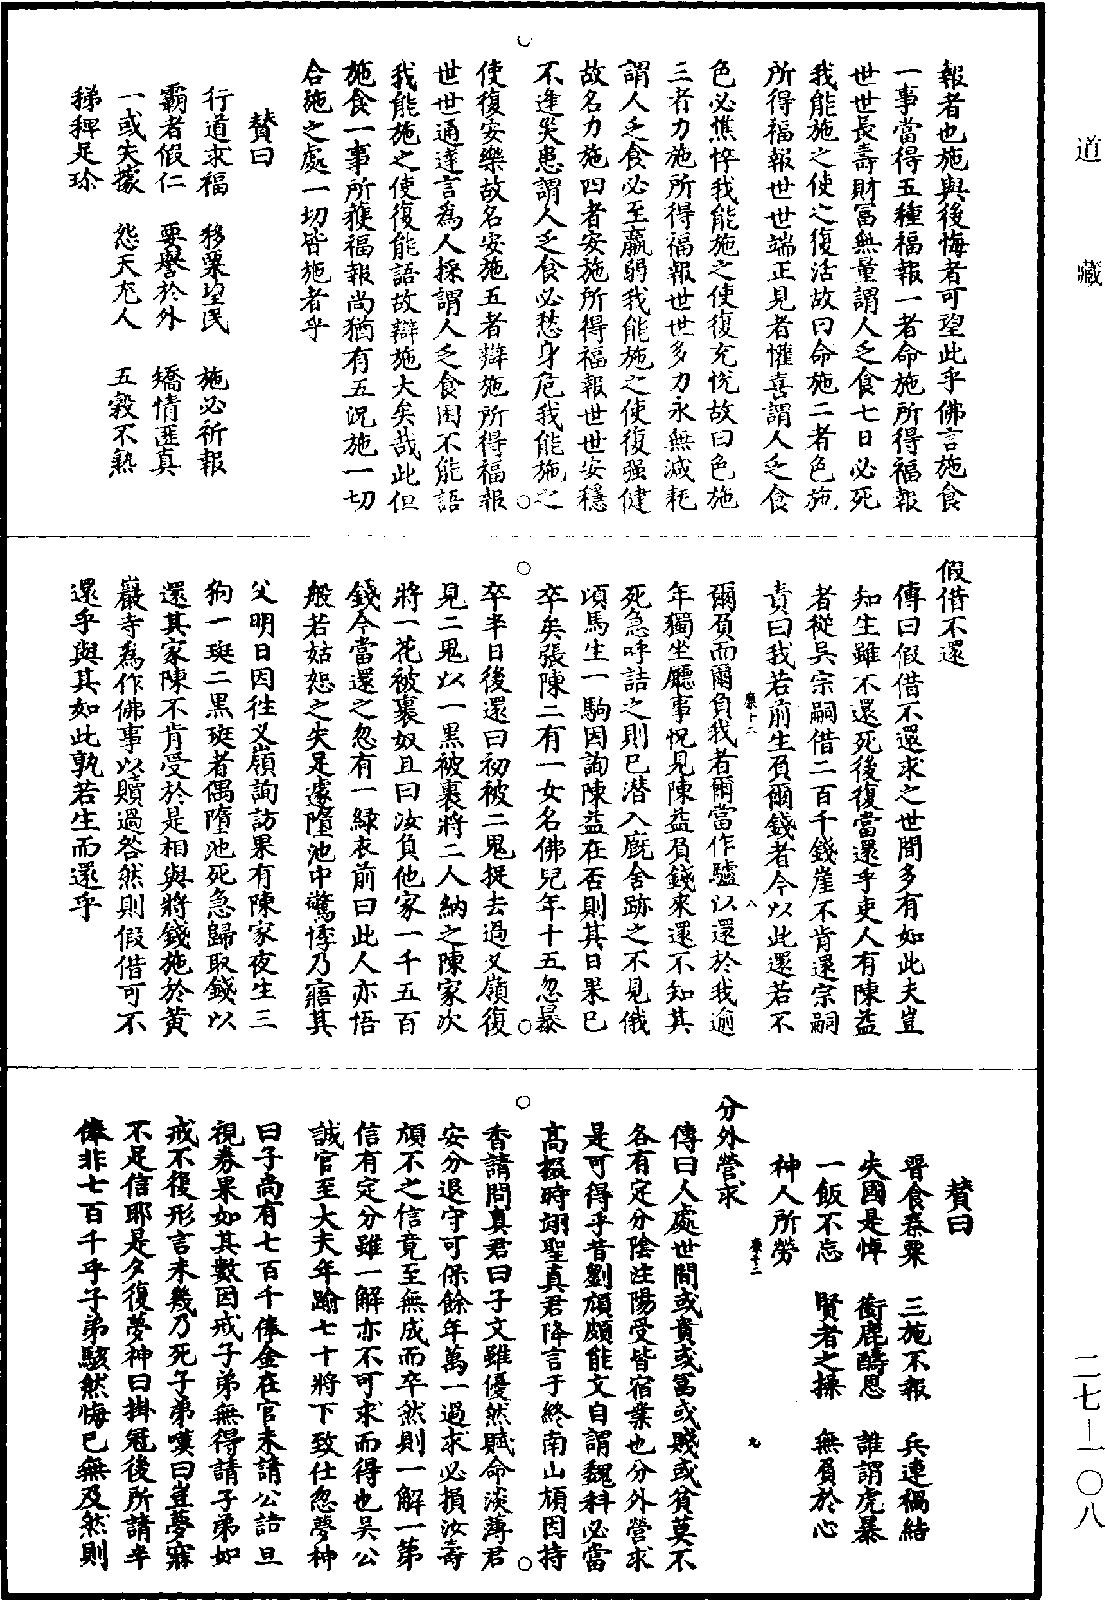 道藏
報者也施與後悔者可望此乎佛言施食
一事當得五種福報一者命施所得福報
世世長壽財富無量謂人乏食七日必死
我能施之使之復活故曰命施二者色施
所得福報世世端正見者懽喜謂人乏食
色必憔悴我能施之使復充悅故曰色施
三者力施所得福報世世多力永無減耗
謂人乏食必至羸弱我能施之使復强健
故名力施四者安施所得福報世世安穩
不逢災患謂人乏食必愁身危我能施之
使復安樂故名安施五者辯施所得福報
世世通達言為人採謂人乏食困不能語
我能施之使復能語故辯施大矣哉此但
施食一事所獲福報尚猶有五況施一切
合施之處一切皆施者乎
贊曰
行道求福 移粟望民 施必祈報
霸者假仁 要譽於外 矯情匪真
一或失據 怨天尤人 五穀不熟
稊稗足珍
假借不還
傳曰假借不還求之世間多有如此夫豈
知生雖不還死後復當還乎吏人有陳益
者從吳宗嗣借二百千錢崖不肯還宗嗣
責曰我若前生負爾錢者今以此還若不
爾負而爾負我者爾當作驢以還於我逾
年獨坐廳事怳見陳益負錢來還不知其
死急呼詰之則已潛入廐舍跡之不見俄
頃馬生一駒因詢陳益在否則其日果已
卒矣張陳二有一女名佛兒年十五忽暴
卒半日後還曰初被二鬼捉去過义嶺復
見二鬼以一黑被裹將二人納之陳家次
將一花被裹奴且曰汝負他家一千五百
錢今當還之忽有一綠衣前曰此人亦悟
般若姑恕之失足遂墮池中驚悸乃寤其
父明日因往义嶺詢訪果有陳家夜生三
狗一斑二黑斑者偶墮池死急歸取錢以
還其家陳不肯受於是相與將錢施於黃
巖寺為作佛事以贖過咎然則假借可不
還乎與其如此孰若生而還乎
贊曰
晉食秦粟 三施不報 兵連禍結
失國是悼 銜鹿酬恩 誰謂虎暴
一飯不忘 賢者之操 無負於心
神人所勞
分外營求
傳曰人處世間或貴或富或賤或貧莫不
各有定分陰注陽受皆宿業也分外營求
是可得乎昔劉頎頗能文自謂魏科必當
高掇時翊聖真君降言于終南山頎因持
香請問真君曰子文雖優然賦命淡薄君
安分退守可保餘年萬一過求必損汝壽
頎不之信竟至無成而卒然則一解一第
信有定分雖一解亦不可求而得也吳公
誠官至大夫年踰七十將下致仕忽夢神
曰子尚有七百千俸金在官未請公詰旦
視券果如其數因戒子弟無得請子弟如
戒不復形言未幾乃死子弟嘆曰豈夢寐
不足信耶是夕復夢神曰掛冠後所請半
俸非七百千乎子弟駭然悔已無及然則
二七—一〇八